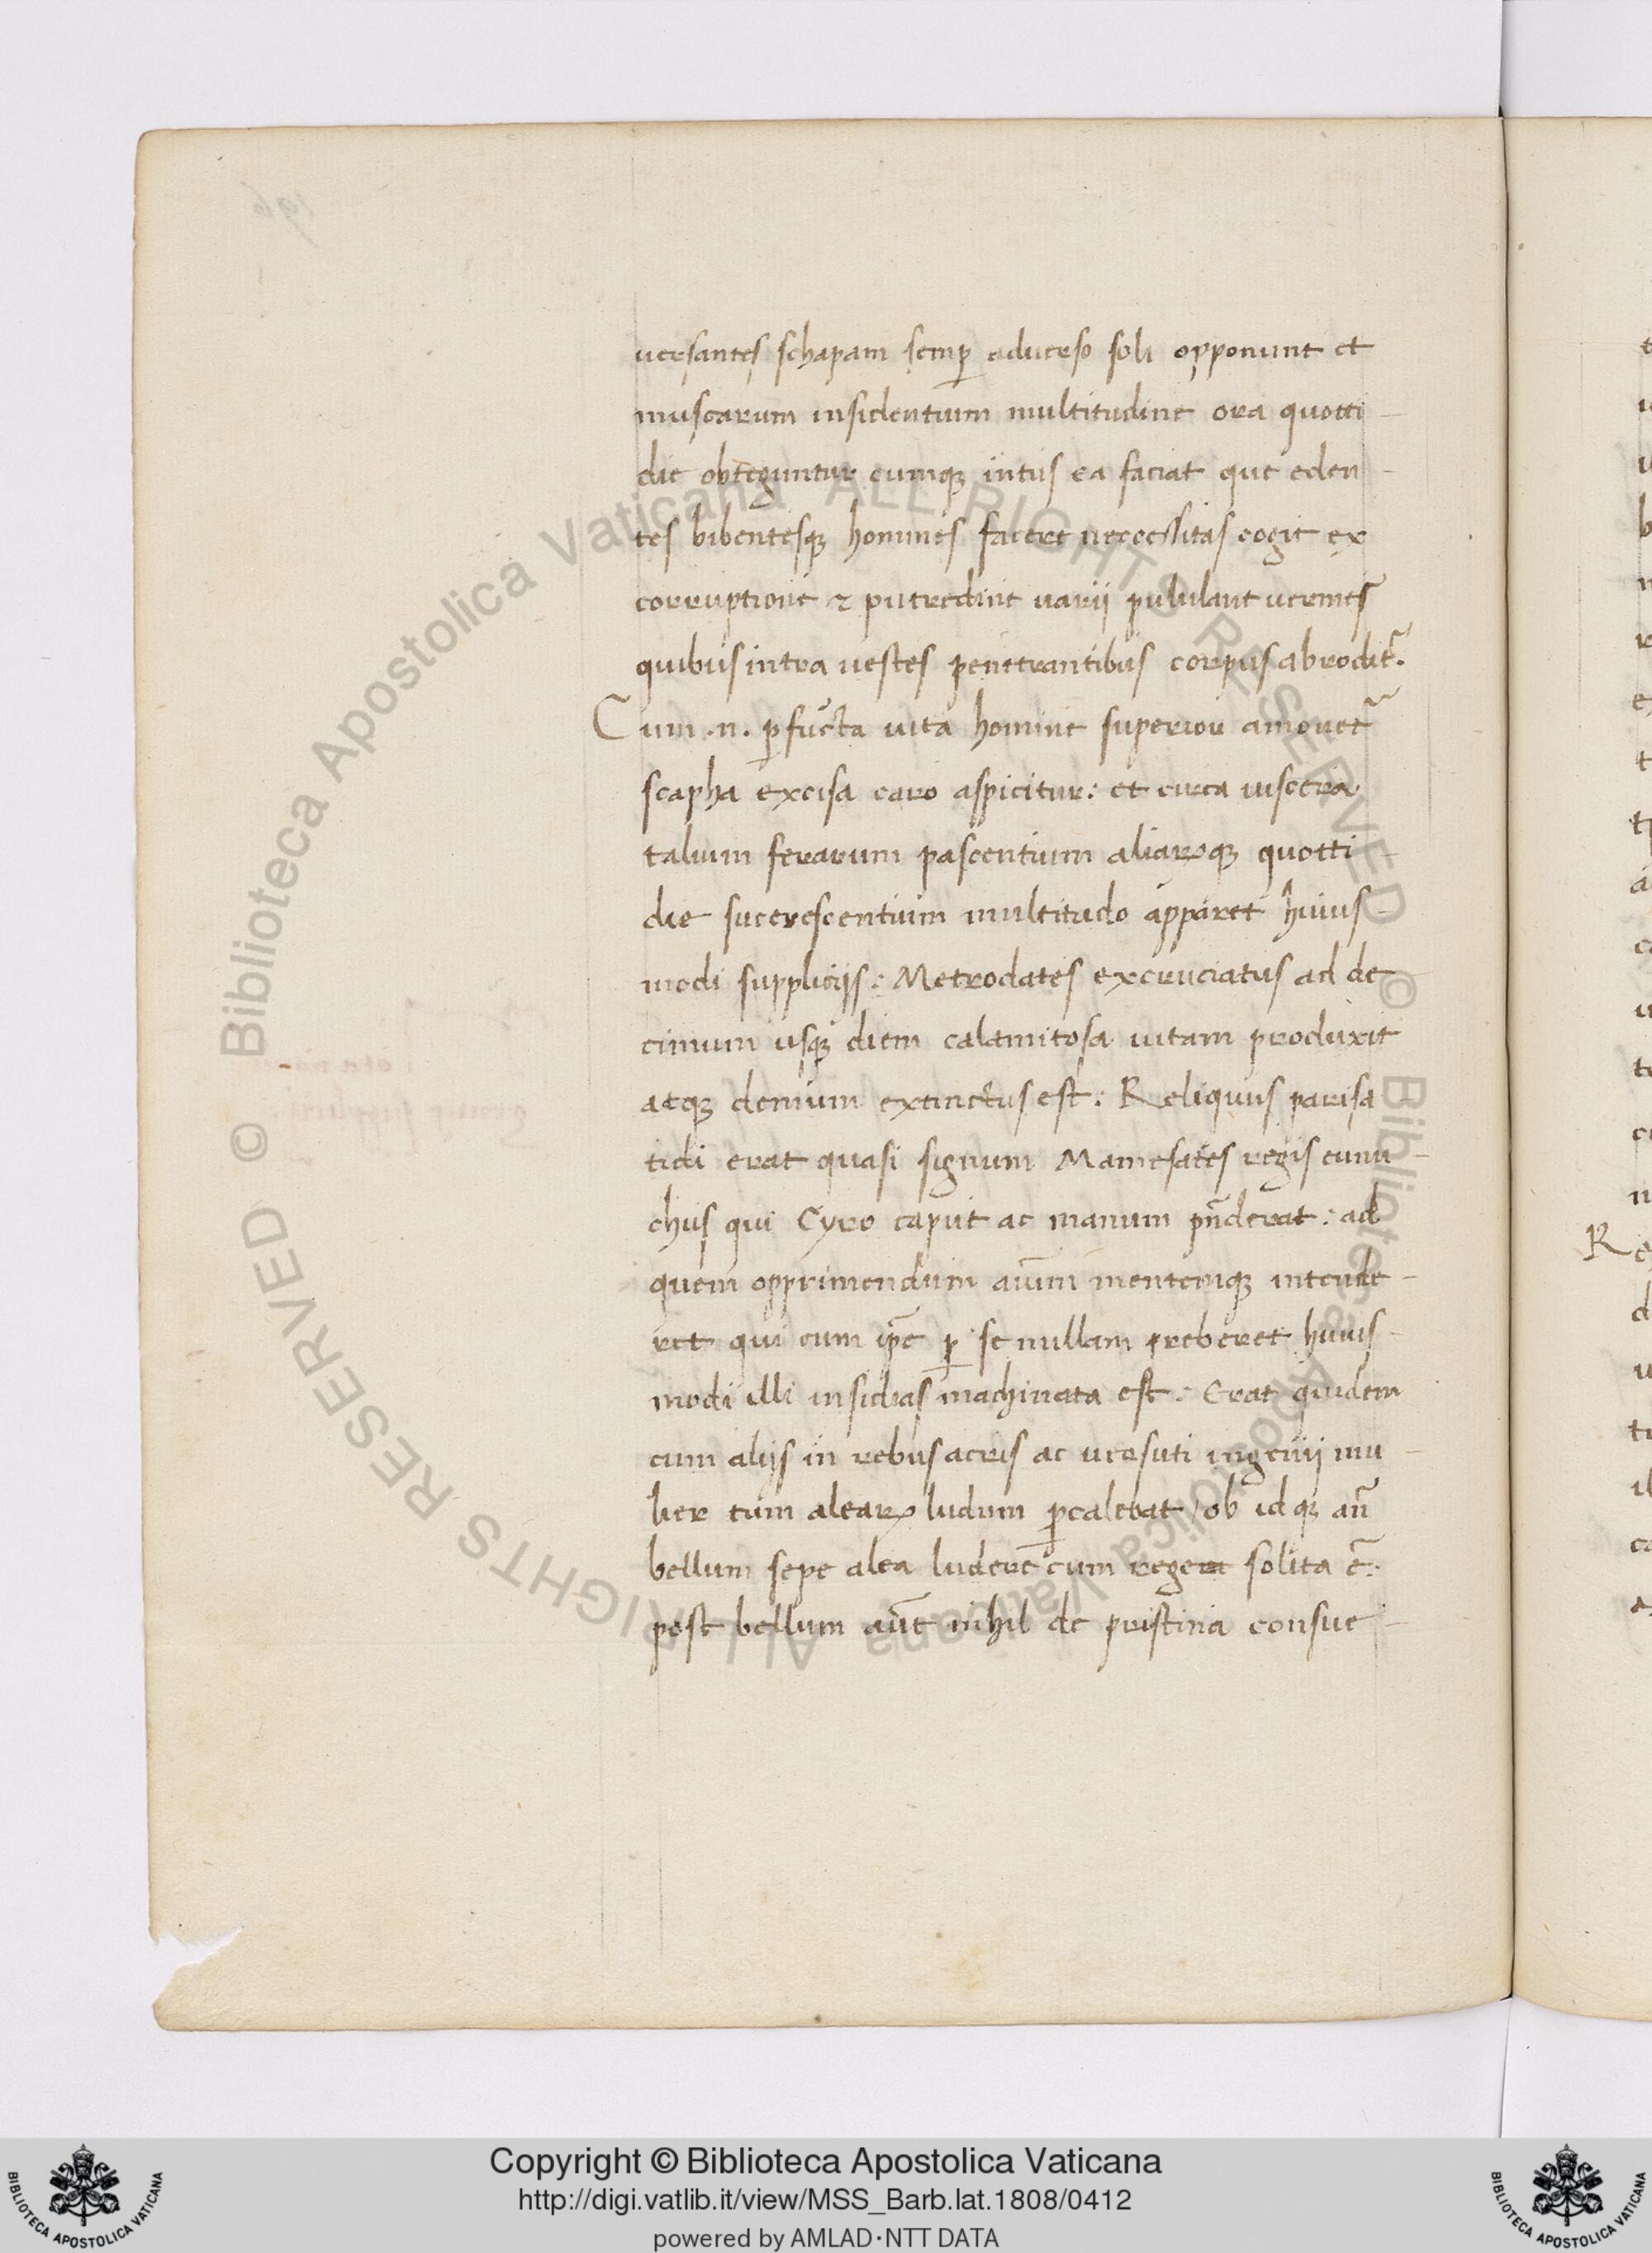 uersantes schapam semp̱ aduerso soli opponunt et
muscarum insidentium multitudine ora quotti-
die obteguntur cumqꝫ intus ea faciat que eden-
tes bibentesqꝫ homines facere necessitas cogit ex
corruptione ⁊ putredine uarij pululant uermes
quibus intra uestes penetrantibus corpus abrodit̃.
Cum .n. ꝑfũcta uita homine superior amouet̃
scapha excisa caro aspicitur: et circa uiscera
talium ferarum pascentium aliarꝝqꝫ quotti-
die sucrescentium multitudo apparet huius-
modi supplicijs: Metrodates excruciatus ad de-
cimum usqꝫ diem calamitosa uitam produxit
atqꝫ demum extinctus est: Reliquus parisa
tidi erat quasi signum Mamesates regis eunu-
chus qui Cyro caput ac manum pñderat: ad
quem opprimendum aĩum mentemqꝫ intende-
ret qui cum ip̃e ꝑ se nullam preberet huius-
modi illi insidias machinata est: Erat quidem
cum alijs in rebus acris ac uersuti ingenij mu-
lier tum alearꝝ ludum ꝑcalebat / ob idqꝫ añ
bellum sepe alea ludere cum rege solita ẽ:
post bellum aũt nihil de pristina consue-
© Biblioteca Apostolica Vaticana ALL RIGHTS RESERVED © Biblioteca Apostolica Vaticana ALL RIGHTS RESERVED
Copyright © Biblioteca Apostolica Vaticana
http://digi.vatlib.it/view/MSS_Barb.lat.1808/0412
powered by AMLAD·NTT DATA
BIBLIOTECA APOSTOLICA VATICANA
BIBLIOTECA APOSTOLICA VATICANA